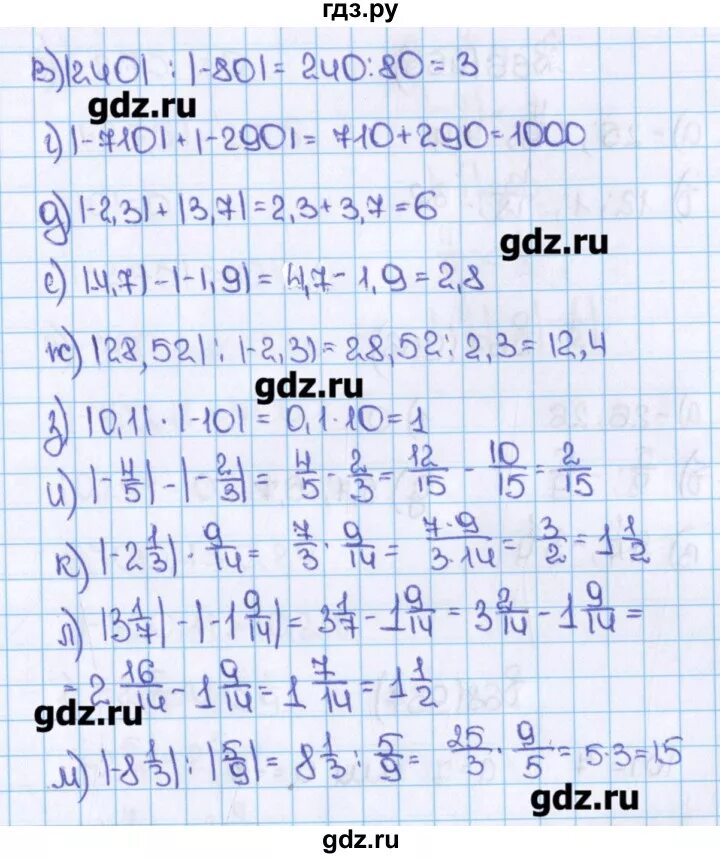 гдз.ру
в) |240| : |-80| = 240:80 = 3
gdz.ru
г) |-710| + |-290| = 710+290 = 1000
д) |-2,3| + |3,7| = 2,3 + 3,7 = 6
gdz.ru
е) |4,7| - |-1,9| = 4,7 - 1,9 = 2,8
ж) |28,52| : |-2,3| = 28,52 : 2,3 = 12,4
gdz.ru
з) |0,1| · |-10| = 0,1 · 10 = 1
и) |-4/5| - |-2/3| = 4/5 - 2/3 = 12/15 - 10/15 = 2/15
к) |-2 1/3| · 9/14 = 7/3 · 9/14 = 7·9/3·14 = 3/2 = 1 1/2
л) |3 1/7| - |-1 9/14| = 3 1/7 - 1 9/14 = 3 2/14 - 1 9/14 =
= 2 16/14 - 1 9/14 = 1 7/14 = 1 1/2
gdz.ru
м) |-8 1/3| : |5/9| = 8 1/3 : 5/9 = 25/3 · 9/5 = 5·3 = 15
gdz.ru
gdz.ru